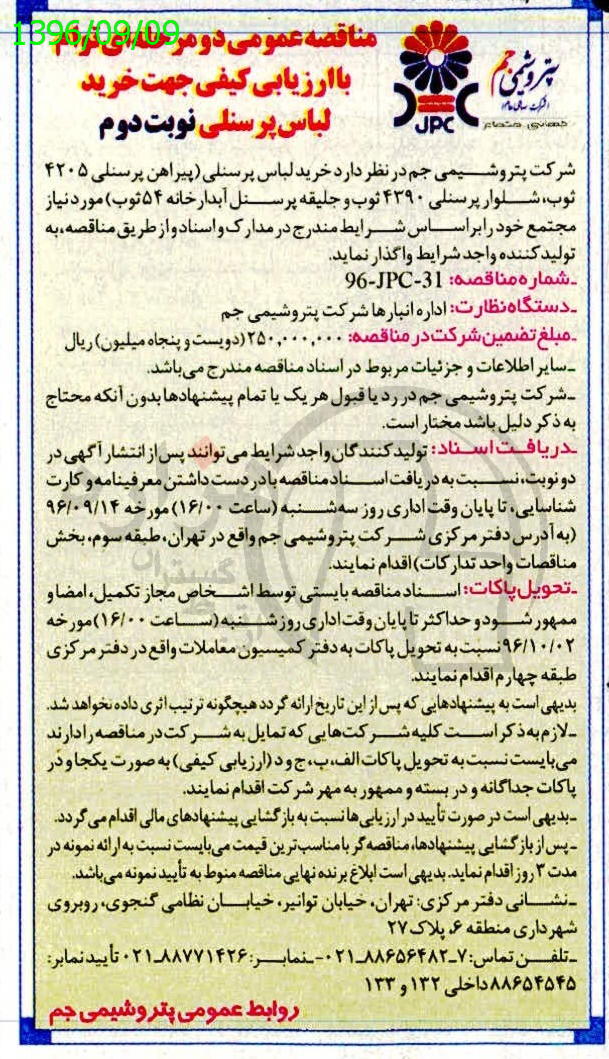 1396/09/09
مناقصه عمومی دو مرحله‌ای توأم
با ارزیابی کیفی جهت خرید
لباس پرسنلی نوبت دوم
پتروشیمی جم
(شرکت سهامی عام)
JPC
شرکت پتروشیمی جم در نظر دارد خرید لباس پرسنلی (پیراهن پرسنلی ۴۲۰۵
ثوب، شلوار پرسنلی ۴۳۹۰ ثوب و جلیقه پرسنل آبدارخانه ۵۴ ثوب) مورد نیاز
مجتمع خود را بر اساس شرایط مندرج در مدارک و اسناد و از طریق مناقصه، به
تولید کننده واجد شرایط واگذار نماید.
ـ شماره مناقصه: 96-JPC-31
ـ دستگاه نظارت: اداره انبارها شرکت پتروشیمی جم
ـ مبلغ تضمین شرکت در مناقصه: ۲۵۰,۰۰۰,۰۰۰ (دویست و پنجاه میلیون) ریال
ـ سایر اطلاعات و جزئیات مربوط در اسناد مناقصه مندرج می‌باشد.
ـ شرکت پتروشیمی جم در رد یا قبول هر یک یا تمام پیشنهادها بدون آنکه محتاج
به ذکر دلیل باشد مختار است.
ـ دریافت اسناد: تولید کنندگان واجد شرایط می‌توانند پس از انتشار آگهی در
دو نوبت، نسبت به دریافت اسناد مناقصه با در دست داشتن معرفینامه و کارت
شناسایی، تا پایان وقت اداری روز سه‌شنبه (ساعت ۱۶/۰۰) مورخه ۹۶/۰۹/۱۴
(به آدرس دفتر مرکزی شرکت پتروشیمی جم واقع در تهران، طبقه سوم، بخش
مناقصات واحد تدارکات) اقدام نمایند.
ـ تحویل پاکات: اسناد مناقصه بایستی توسط اشخاص مجاز تکمیل، امضا و
ممهور شود و حداکثر تا پایان وقت اداری روز شنبه (ساعت ۱۶/۰۰) مورخه
۹۶/۱۰/۰۲ نسبت به تحویل پاکات به دفتر کمیسیون معاملات واقع در دفتر مرکزی
طبقه چهارم اقدام نمایند.
بدیهی است به پیشنهادهایی که پس از این تاریخ ارائه گردد هیچگونه ترتیب اثری داده نخواهد شد.
ـ لازم به ذکر است کلیه شرکت‌هایی که تمایل به شرکت در مناقصه را دارند
می‌بایست نسبت به تحویل پاکات الف، ب، ج و د (ارزیابی کیفی) به صورت یکجا و در
پاکات جداگانه و در بسته و ممهور به مهر شرکت اقدام نمایند.
ـ بدیهی است در صورت تأیید در ارزیابی‌ها نسبت به بازگشایی پیشنهادهای مالی اقدام می‌گردد.
ـ پس از بازگشایی پیشنهادها، مناقصه‌گر با مناسب‌ترین قیمت می‌بایست نسبت به ارائه نمونه در
مدت ۳ روز اقدام نماید. بدیهی است ابلاغ برنده نهایی مناقصه منوط به تأیید نمونه می‌باشد.
ـ نشانی دفتر مرکزی: تهران، خیابان توانیر، خیابان نظامی گنجوی، روبروی
شهرداری منطقه ۶، پلاک ۲۷
ـ تلفن تماس: ۷ـ۸۸۶۵۶۴۸۲ـ۰۲۱ـ نمابر: ۸۸۷۷۱۴۲۶ـ۰۲۱ تأیید نمابر:
۸۸۶۵۴۵۴۵ داخلی ۱۳۲ و ۱۳۳
روابط عمومی پتروشیمی جم